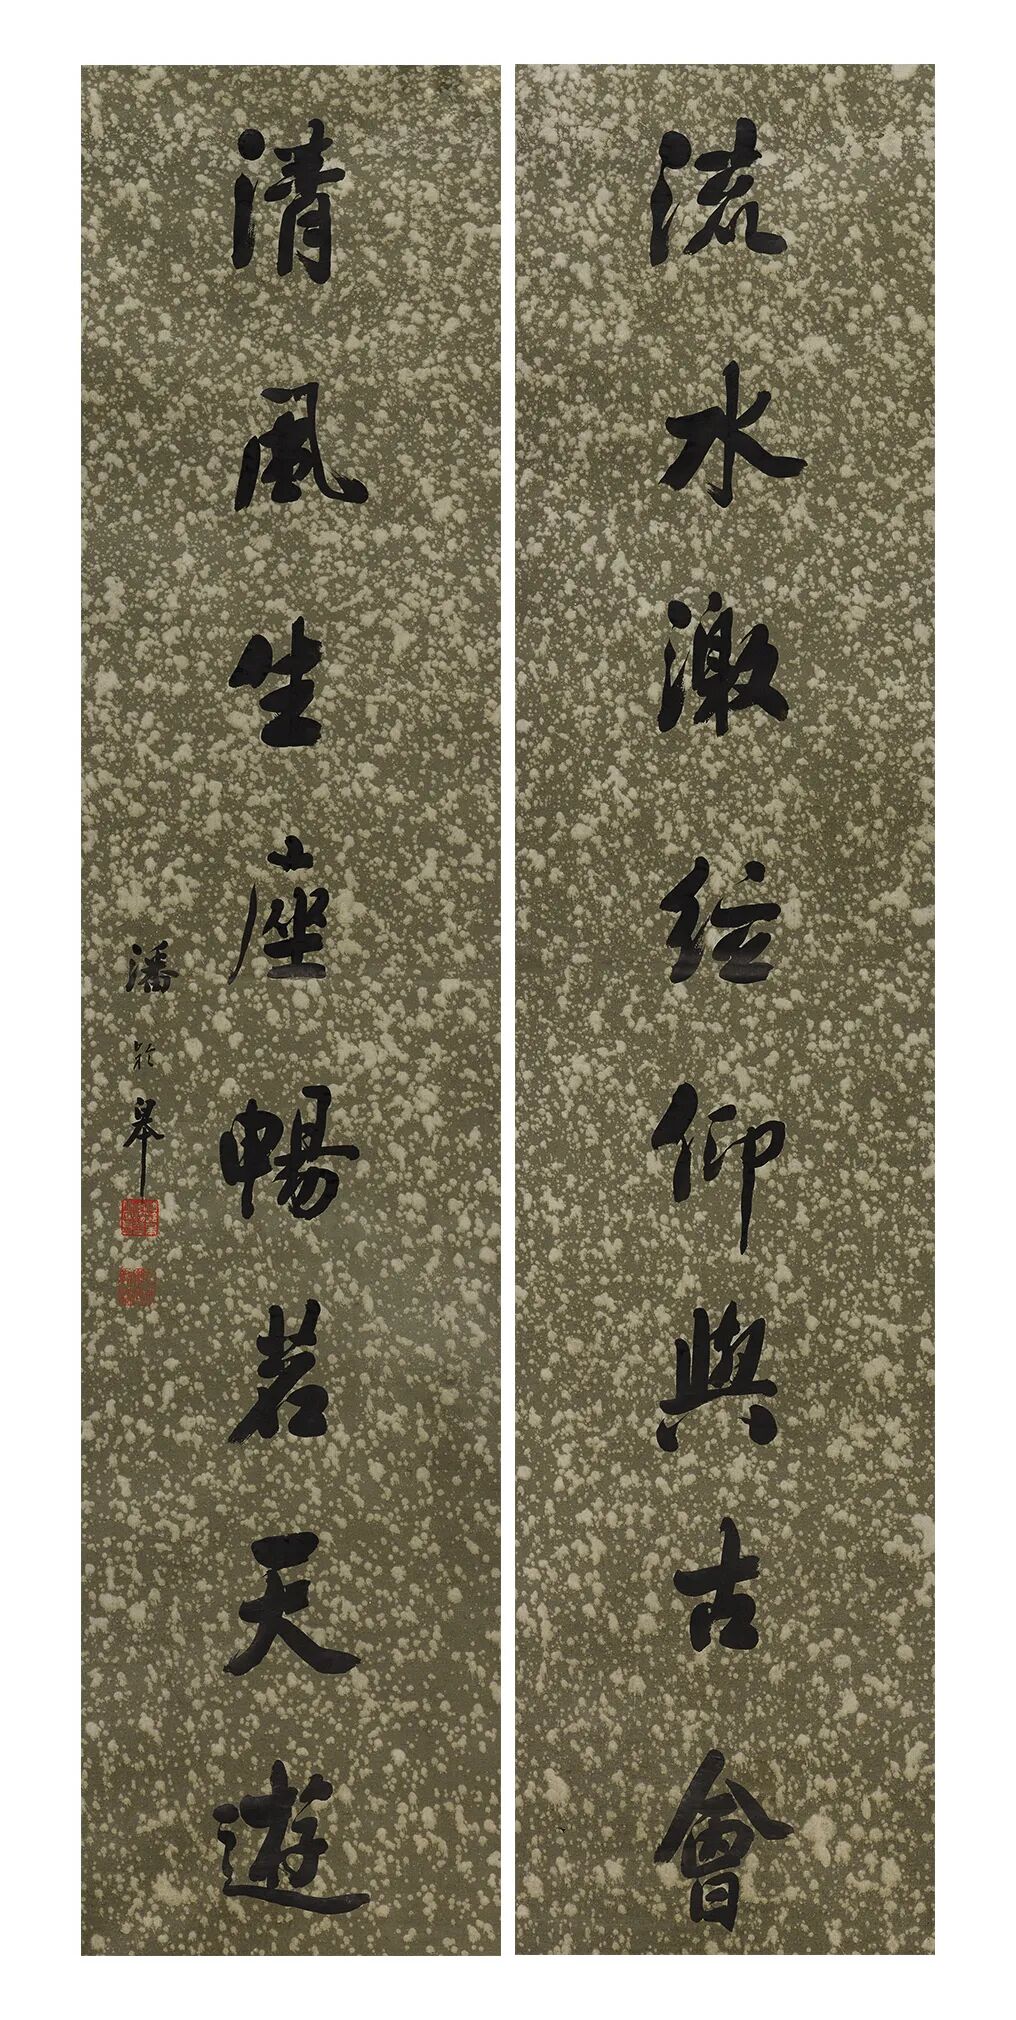 流水激絃仰與古會
清風生座暢若天遊
潘齡皋